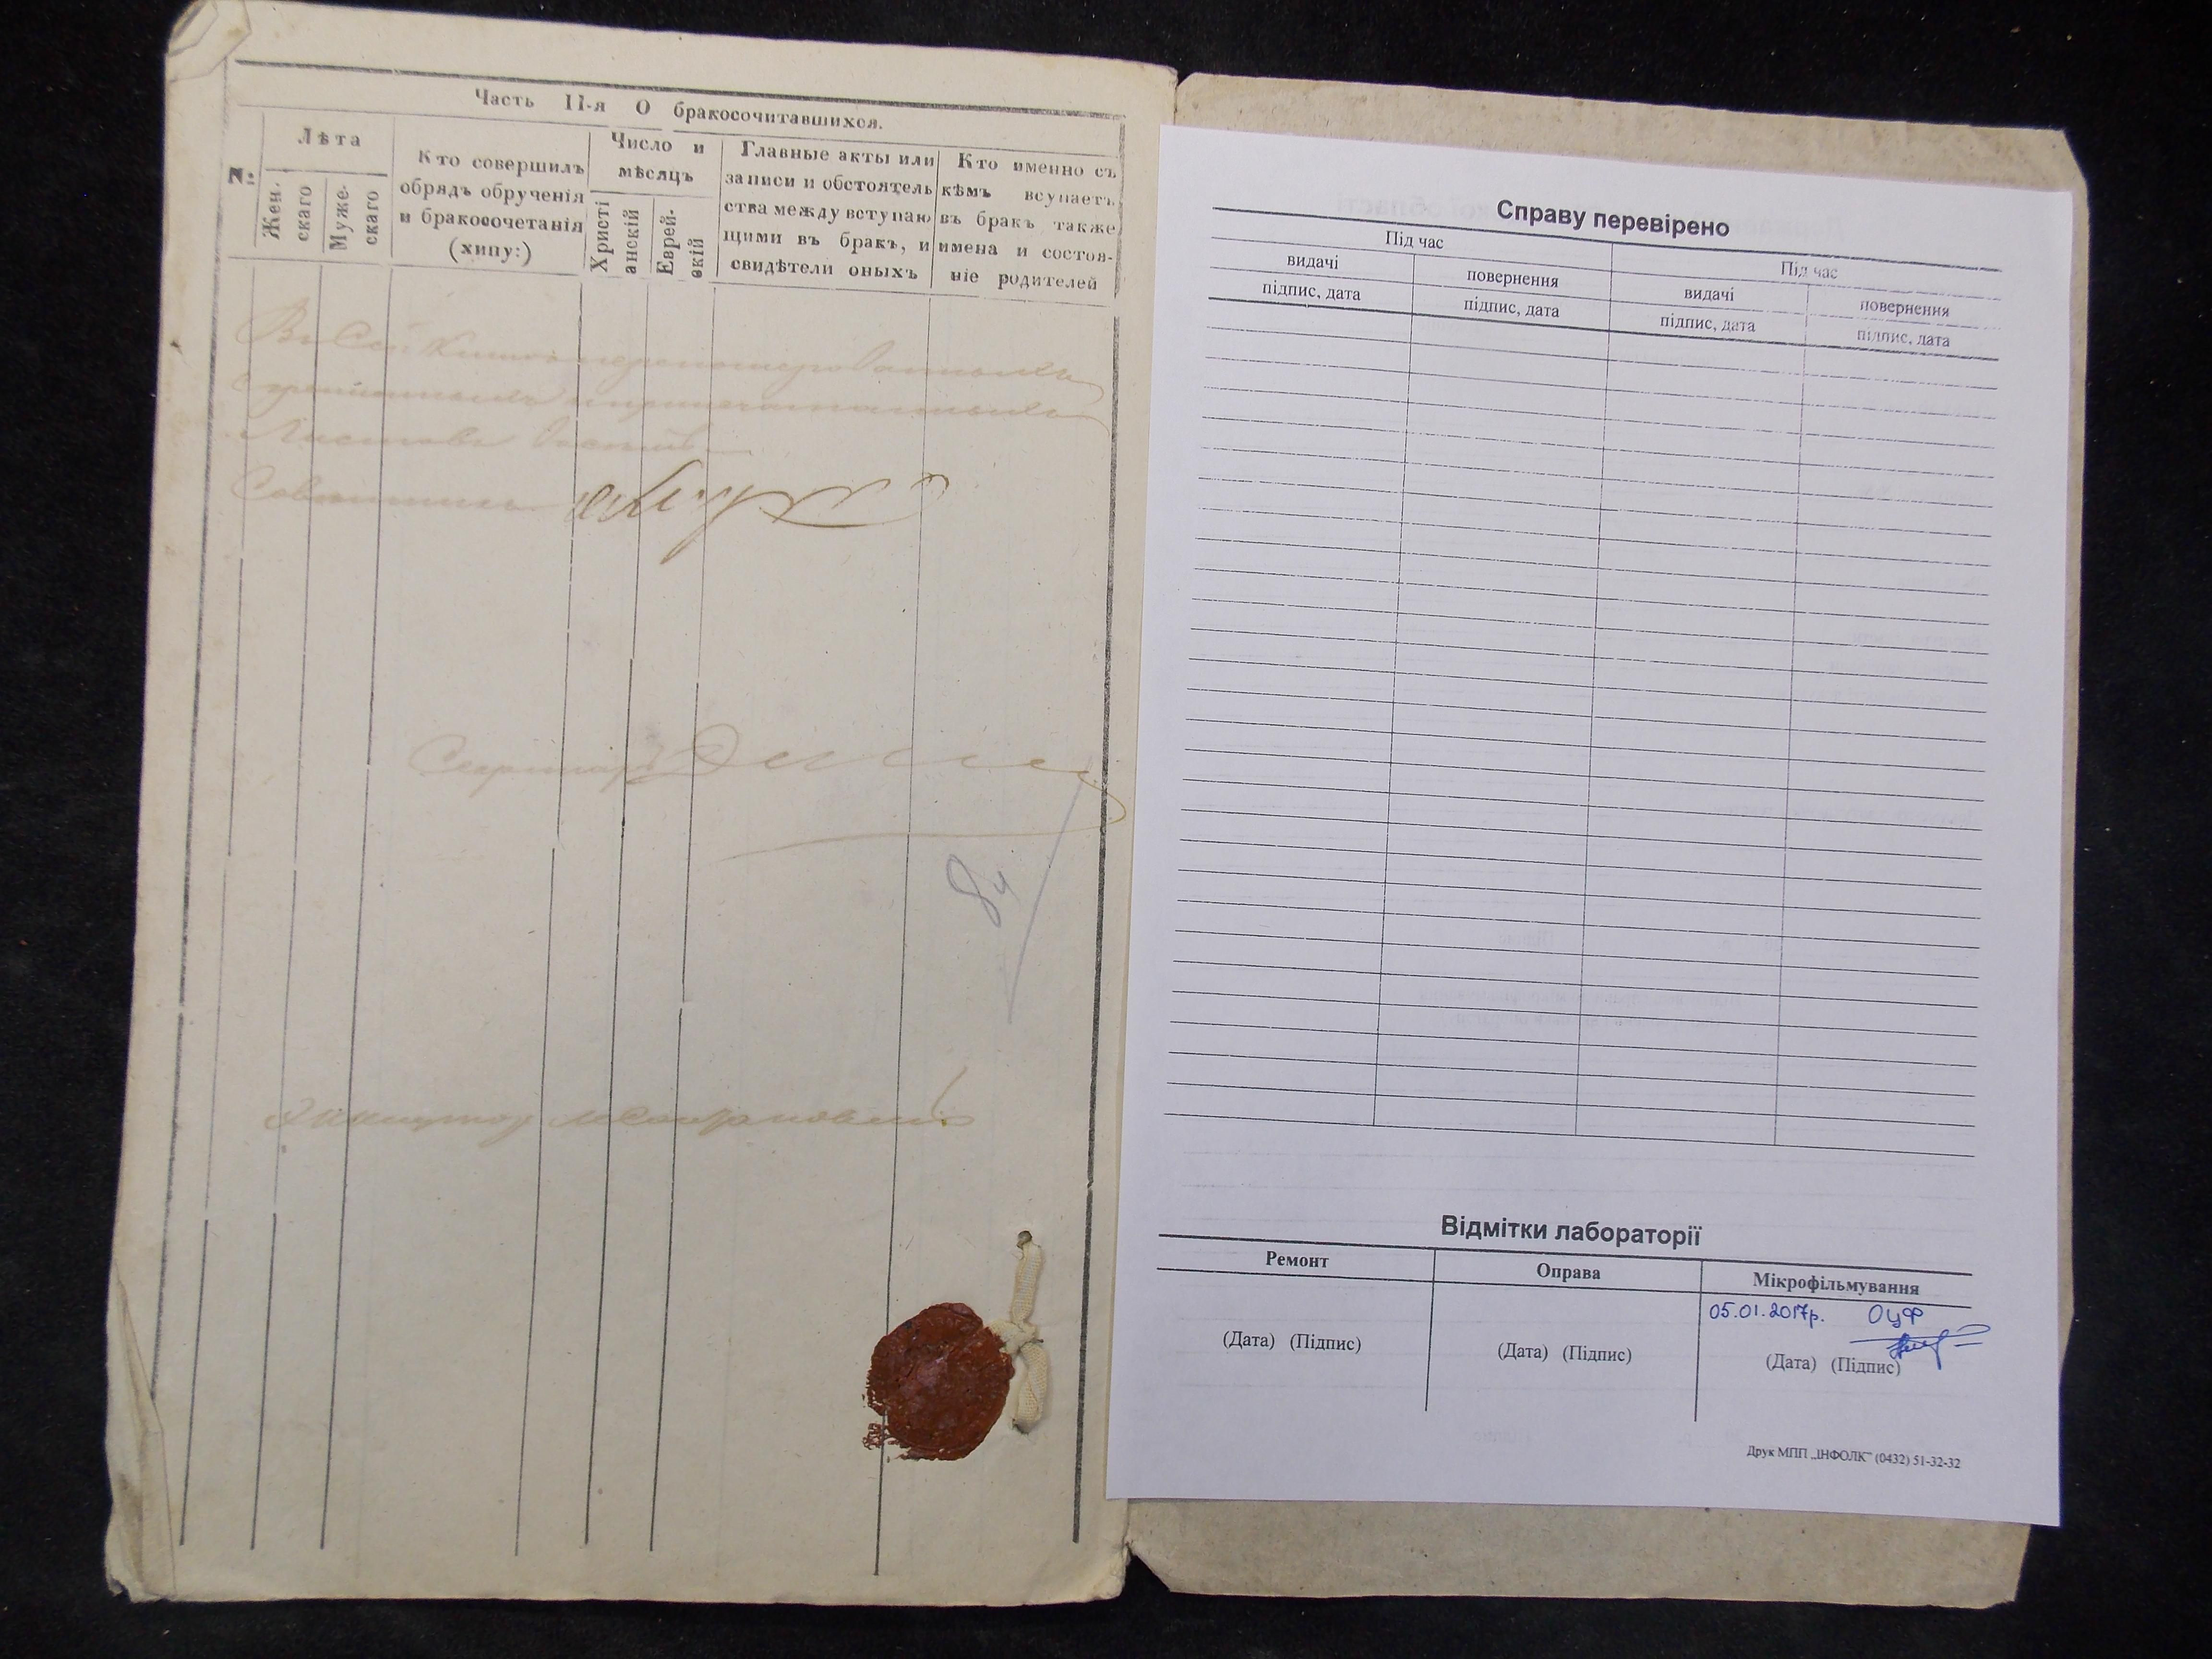 Часть II-я О бракосочитавшихся.
№
Лѣта
Жен.
скаго
Муже-
скаго
Кто совершилъ
обрядъ обрученія
и бракосочетанія
(хипу:)
Число и
мѣсяцъ
Христі
анскій
Еврей-
скій
Главные акты или
записи и обстоятель
ства между вступаю
щими въ бракъ, и
свидѣтели оныхъ
Кто именно съ
кѣмъ всупаетъ
въ бракъ также
имена и состоя-
ніе родителей
Въ Сей Книге
Листовъ
Секретарь
84
Справу перевірено
Під час
Під час
видачі
повернення
видачі
повернення
підпис, дата
підпис, дата
підпис, дата
підпис, дата
Відмітки лабораторії
Ремонт
Оправа
Мікрофільмування
05.01.2017р. ОЦФ
(Дата) (Підпис)
(Дата) (Підпис)
(Дата) (Підпис)
Друк МПП „ІНФОЛК" (0432) 51-32-32